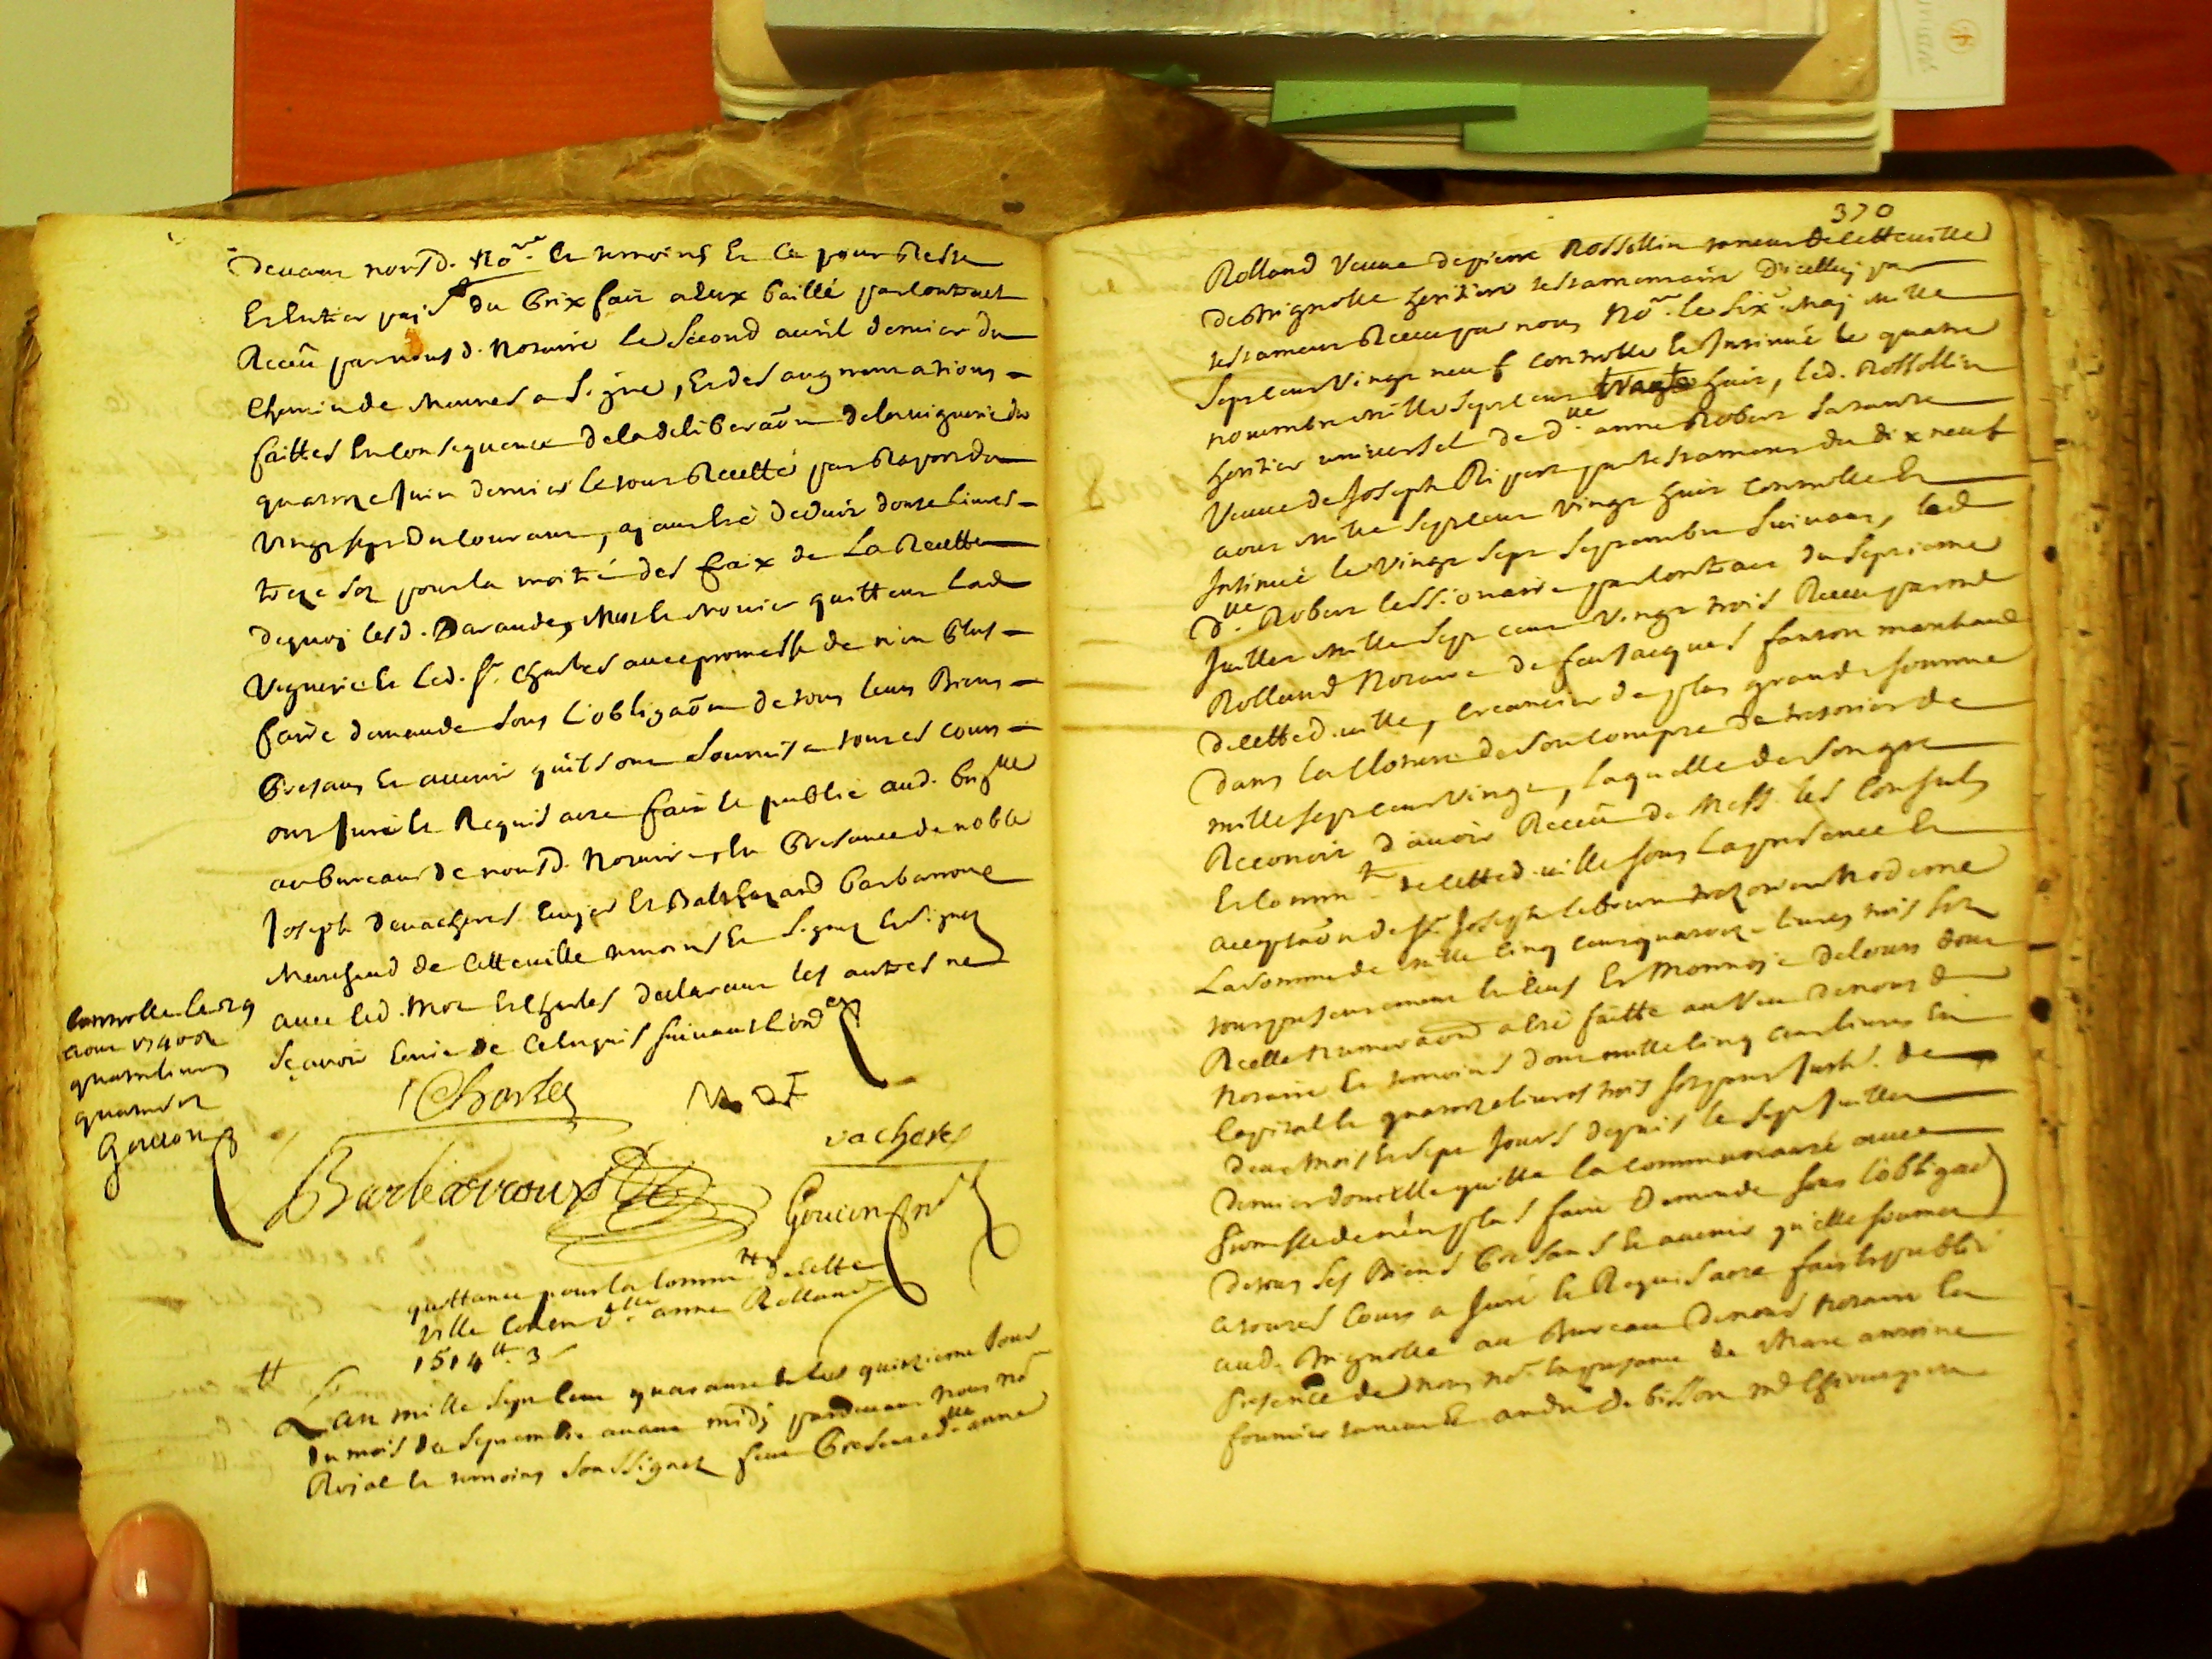 devant nousd. No.re et temoins et ce pour reste
et entier paie. du prix fait a eux baillé par contract
receu par nousd. notaire le second avril dernier du
chemin de meunes a signe, et des augmentations
faittes en consequence de la deliberaõn de la viguerie du
quatorze juin dernier le tout recetté par raport du
vingt sept du courant, ajant eté deduit douze livres
treze sol pour la moitié des fraix de la recette
dequoj lesd. quittent lad.
viguerie et led. Sr. Charles avec promesse de n'en plus
faire demande sous l'obligaõn de tous leurs biens
presans et avenir quils ont soumis a toutes cours
ont juré et requis acte fait et publié aud. brig.lle
au bureau de nousd. notaire, en presance de noble
joseph devacheres ecujer et Balthazard barbaroux
marchand de cette ville temoins et signez et signé
avec led. mor et charles declarant les autres ne
sçavoir ecrire de ce enquis suivant l'ord.ce
controllé le 29
aout 1742
quatre livres
quatre sol
Goujon
Charles
vacheres
Barbarroux
Goujon no.re
quittance pour la comm.té de cette
ville contre d.lle anne Rolland
1514 tt. 3 s
L'an mille sept cent quarante deux et le quinzieme jour
du mois de septembre avant midj pardevant nous no.re
Rojal et temoins soussignez feut presente d.lle anne
370
Rolland veuve de pierre Rossollin taneur de cette ville
de brignolle heritiere testamentaire d'icelluj par
testament receu par nous No.re le six maj mille
sept cent vingt neuf controllé et insinué le quatre
novembre mille sept cent huit, led. Rossollin
heritier universel de d.lle anne Robert sa tante
veuve de joseph Ripert par testament du dix neuf
aout mille sept cent vingt huit controllé et
insinué le vingt sept septembre suivant, lad.
d.lle Robert cessionaire par contract du septieme
juillet mille sept cent vingt trois receu par me
Rolland notaire de feu jacques fanton marchand
de cetted. ville, creancier de plus grande somme
dans la cloture de son compte de tresorier de
mille sept cent vingt, laquelle de son gré
reconoit d'avoir receu de Mess. les consuls
et comm.té de cetted. ville sous la presence et
acceptaõn de Sr. joseph lebrun trezorier moderne
la somme de mille cinq cent quatorze livres trois sol
tout presentement en ecus et monnoje de cours dont
reelle numeraõn a eté faitte au veu de nousd.
notaire et temoins dont mille cinq cent livres en
capital et quatorze livres trois sol pour jnth. de
deux mois et sept jours depuis le sept juillet
dernier dont elle quitte la communauté avec
promesse de n'en plus faire demande sous l'obligaõn
de tous ses biens presans et avenir qu'elle soumet
a toutes cours a juré et requis acte fait et publié
aud. brignolle au bureau de nousd. notaire en
presence de nous no.re en presance de marc antoine
fournier taneur et andré de bisson md